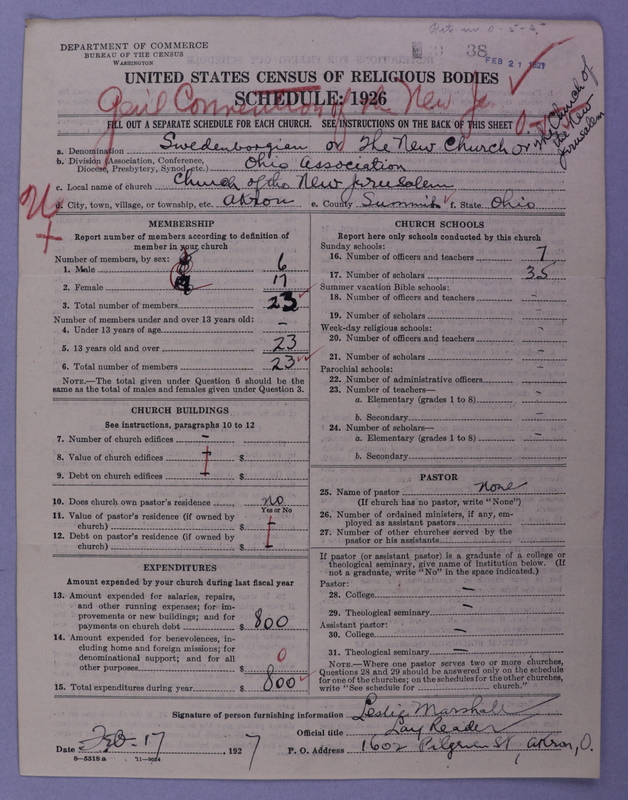 DEPARTMENT OF COMMERCE
BUREAU OF THE CENSUS
WASHINGTON
38
FEB 21 1927
UNITED STATES CENSUS OF RELIGIOUS BODIES
SCHEDULE: 1926
Gen'l Convention of the New Je
FILL OUT A SEPARATE SCHEDULE FOR EACH CHURCH. SEE INSTRUCTIONS ON THE BACK OF THIS SHEET
a. Denomination Swedenborgian or The New Church or The Church of the New Jerusalem
b. Division (Association, Conference, Diocese, Presbytery, Synod, etc.) Ohio Association
c. Local name of church Church of the New Jerusalem
d. City, town, village, or township, etc. Akron e. County Summit f. State Ohio
MEMBERSHIP
Report number of members according to definition of
member in your church
Number of members, by sex:
1. Male 6
2. Female 17
3. Total number of members 23
Number of members under and over 13 years old:
4. Under 13 years of age –
5. 13 years old and over 23
6. Total number of members 23
NOTE.—The total given under Question 6 should be
same as the total of males and females given under Question 3.
CHURCH BUILDINGS
See instructions, paragraphs 10 to 12
7. Number of church edifices –
8. Value of church edifices $
9. Debt on church edifices $
10. Does church own pastor's residence no
Yes or No
11. Value of pastor's residence (if owned by
church) $
12. Debt on pastor's residence (if owned by
church) $
EXPENDITURES
Amount expended by your church during last fiscal year
13. Amount expended for salaries, repairs,
and other running expenses; for im-
provements or new buildings; and for
payments on church debt $ 800
14. Amount expended for benevolences, in-
cluding home and foreign missions; for
denominational support; and for all
other purposes $ 0
15. Total expenditures during year $ 800
CHURCH SCHOOLS
Report here only schools conducted by this church
Sunday schools:
16. Number of officers and teachers 7
17. Number of scholars 35
Summer vacation Bible schools:
18. Number of officers and teachers –
19. Number of scholars –
Week-day religious schools:
20. Number of officers and teachers –
21. Number of scholars –
Parochial schools:
22. Number of administrative officers –
23. Number of teachers—
a. Elementary (grades 1 to 8) –
b. Secondary –
24. Number of scholars—
a. Elementary (grades 1 to 8) –
b. Secondary
PASTOR
25. Name of pastor none
(If church has no pastor, write "None")
26. Number of ordained ministers, if any, em-
ployed as assistant pastors
27. Number of other churches served by the
pastor or his assistants
If pastor (or assistant pastor) is a graduate of a college or
theological seminary, give name of institution below. (If
not a graduate, write "No" in the space indicated.)
Pastor:
28. College –
29. Theological seminary –
Assistant pastor:
30. College –
31. Theological seminary –
NOTE.—Where one pastor serves two or more churches,
Questions 28 and 29 should be answered only on the schedule
for one of the churches; on the schedules for the other churches,
write "See schedule for church."
Signature of person furnishing information Leslie Marshall
Official title Lay Reader
Date Feb-17, 1927 P. O. Address 1602 Pilgrim St, Akron, O.
8—5518 a 11—9024